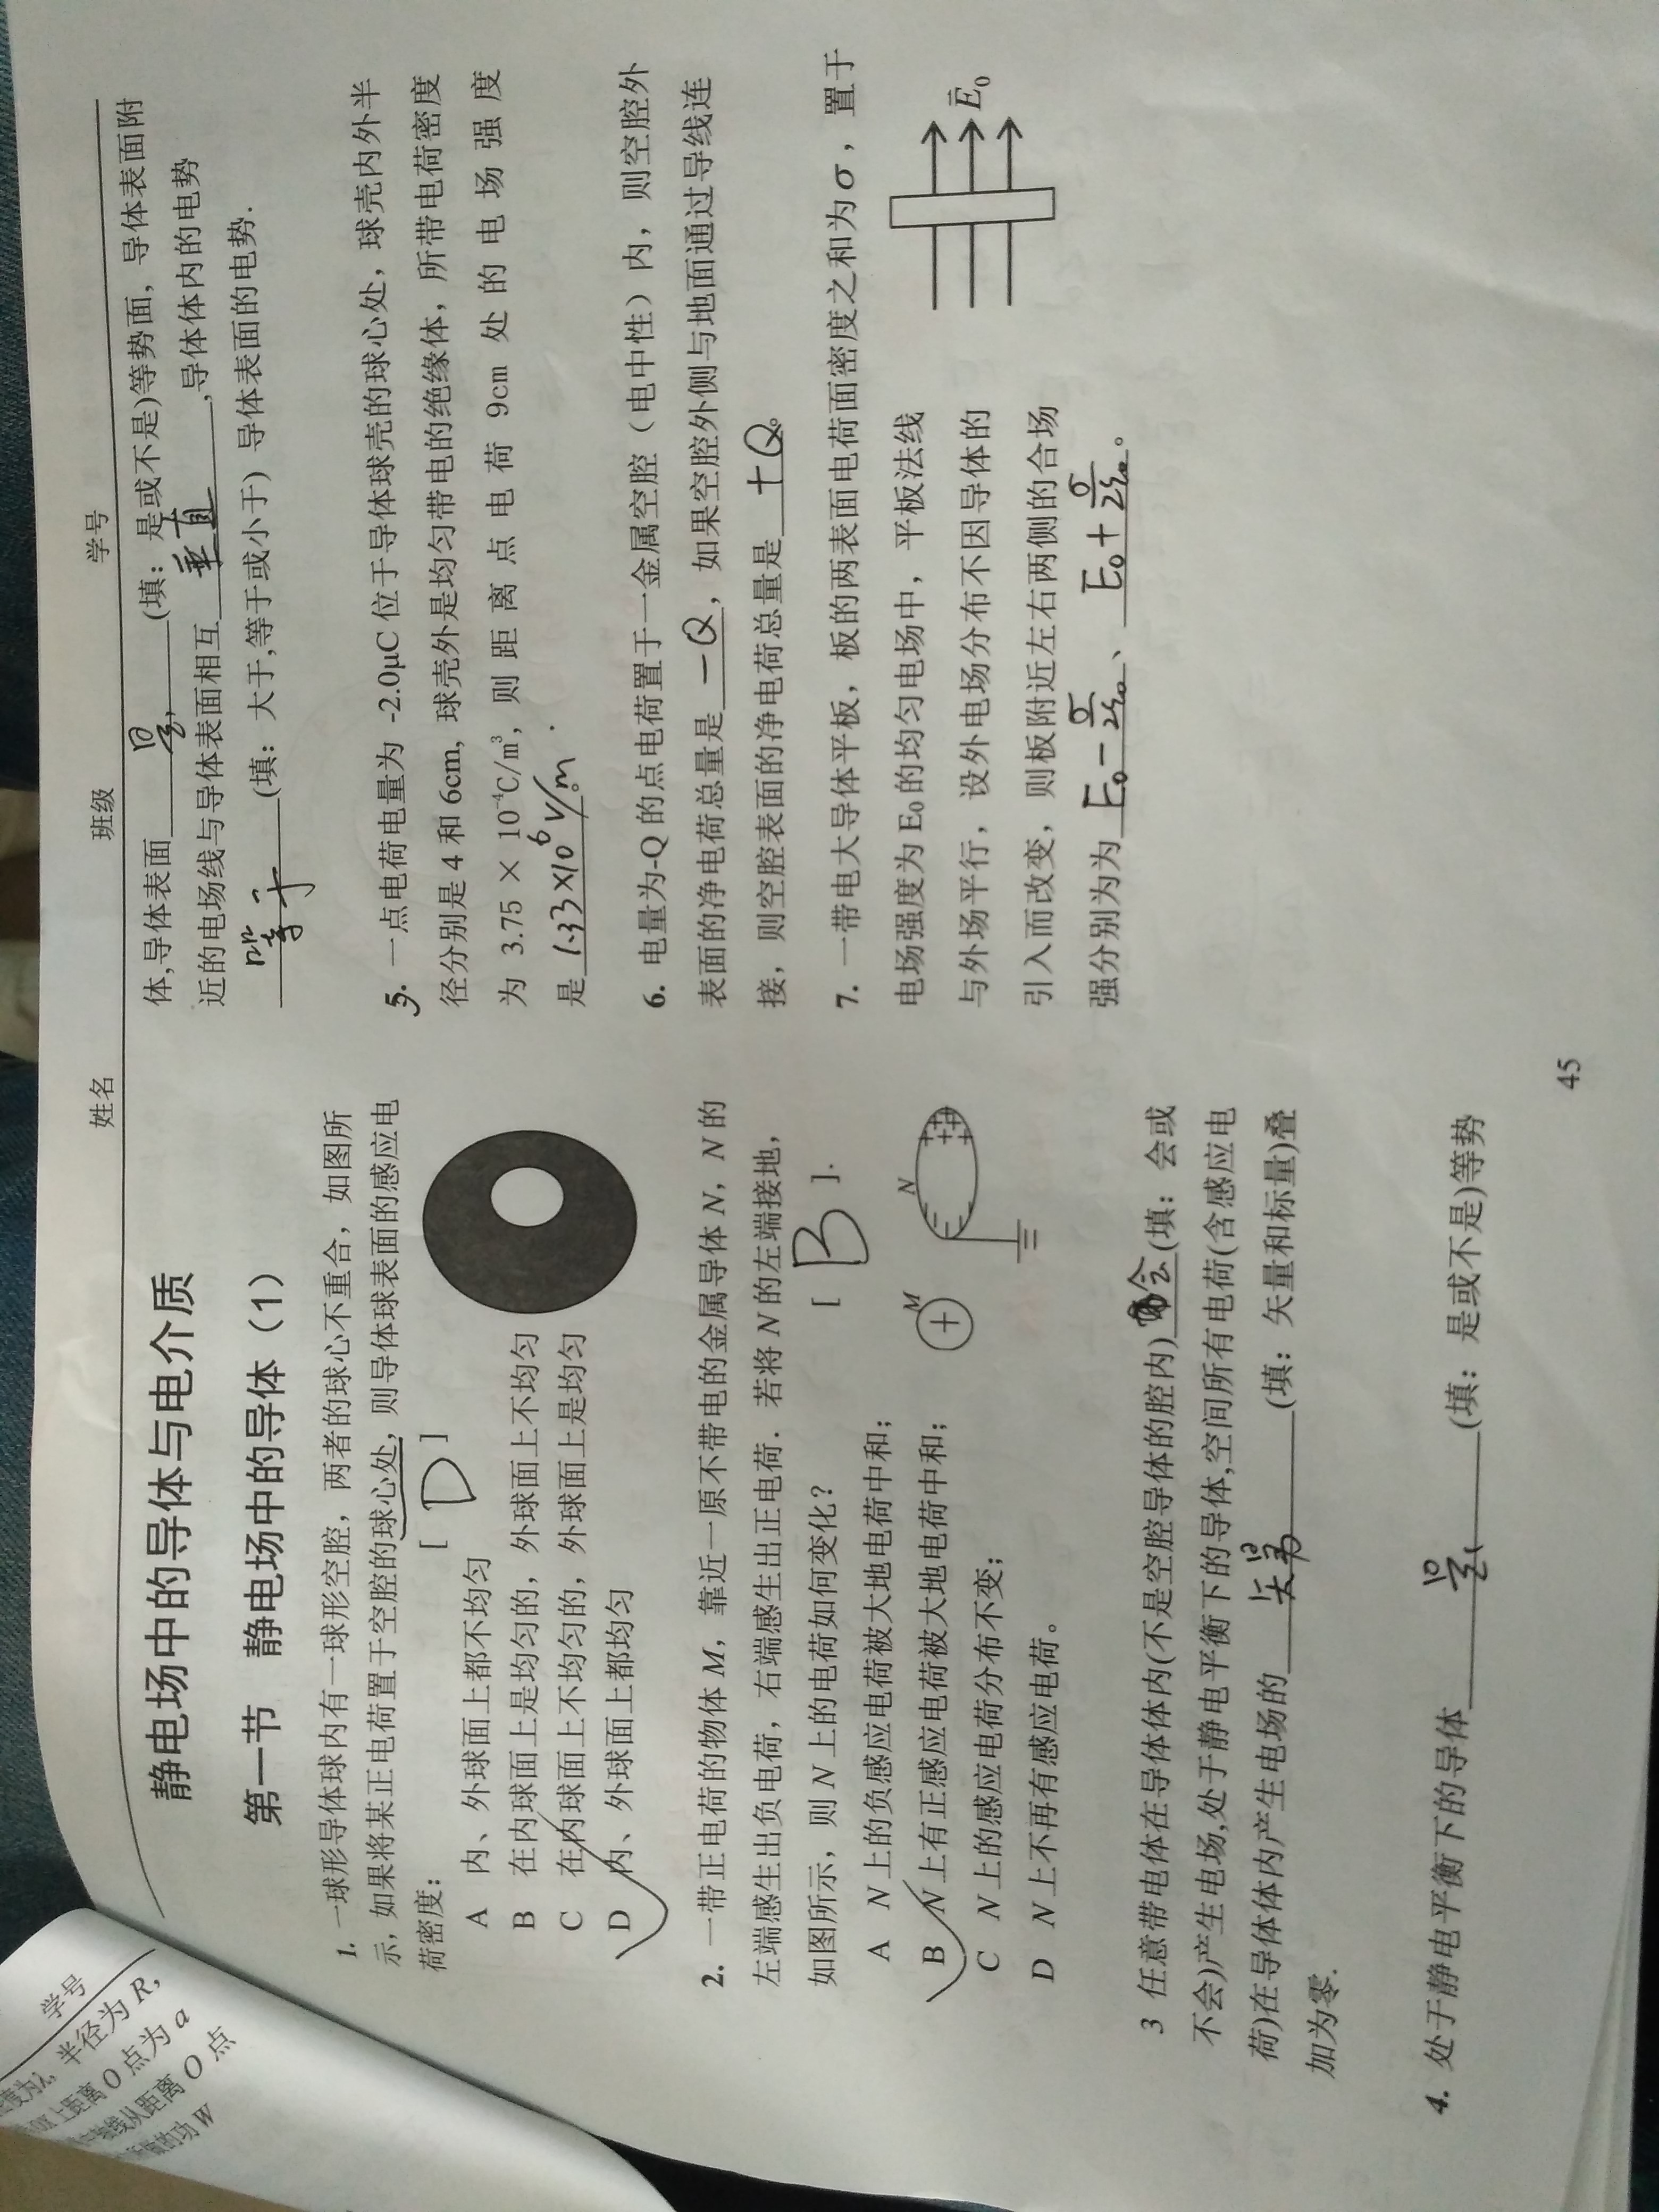 姓名 班级 学号
静电场中的导体与电介质
第一节 静电场中的导体（1）
1. 一球形导体球内有一球形空腔，两者的球心不重合，如图所
示，如果将某正电荷置于空腔的球心处，则导体球表面的感应电
荷密度： [ D ]
A 内、外球面上都不均匀
B 在内球面上是均匀的，外球面上不均匀
C 在内球面上不均匀的，外球面上是均匀
D 内、外球面上都均匀
2. 一带正电荷的物体 M，靠近一原不带电的金属导体 N，N 的
左端感生出负电荷，右端感生出正电荷．若将 N 的左端接地，
如图所示，则 N 上的电荷如何变化？ [ B ].
A N 上的负感应电荷被大地电荷中和；
B N 上有正感应电荷被大地电荷中和；
C N 上的感应电荷分布不变；
D N 上不再有感应电荷。
+ M N
3 任意带电体在导体体内(不是空腔导体的腔内) 会 (填：会或
不会)产生电场,处于静电平衡下的导体,空间所有电荷(含感应电
荷)在导体体内产生电场的 矢量 (填：矢量和标量)叠
加为零.
4. 处于静电平衡下的导体 是 (填：是或不是)等势
体,导体表面 是 (填：是或不是)等势面，导体表面附
近的电场线与导体表面相互 垂直 ,导体体内的电势
等于 (填：大于,等于或小于) 导体表面的电势.
5. 一点电荷电量为 -2.0μC 位于导体球壳的球心处，球壳内外半
径分别是 4 和 6cm, 球壳外是均匀带电的绝缘体，所带电荷密度
为 3.75 × 10⁻⁴C/m³，则距离点电荷 9cm 处的电场强度
是 1.33×10⁶ V/m .
6. 电量为-Q 的点电荷置于一金属空腔（电中性）内，则空腔外
表面的净电荷总量是 -Q ，如果空腔外侧与地面通过导线连
接，则空腔表面的净电荷总量是 +Q。
7. 一带电大导体平板，板的两表面电荷面密度之和为 σ，置于
电场强度为 E₀ 的均匀电场中，平板法线
与外场平行，设外电场分布不因导体的
引入而改变，则板附近左右两侧的合场
强分别为为 E₀ - σ/2ε₀ 、 E₀ + σ/2ε₀ 。
E₀
45
学号
半径为 R，
上距离 O 点为 a
线从距离 O 点
的功 W